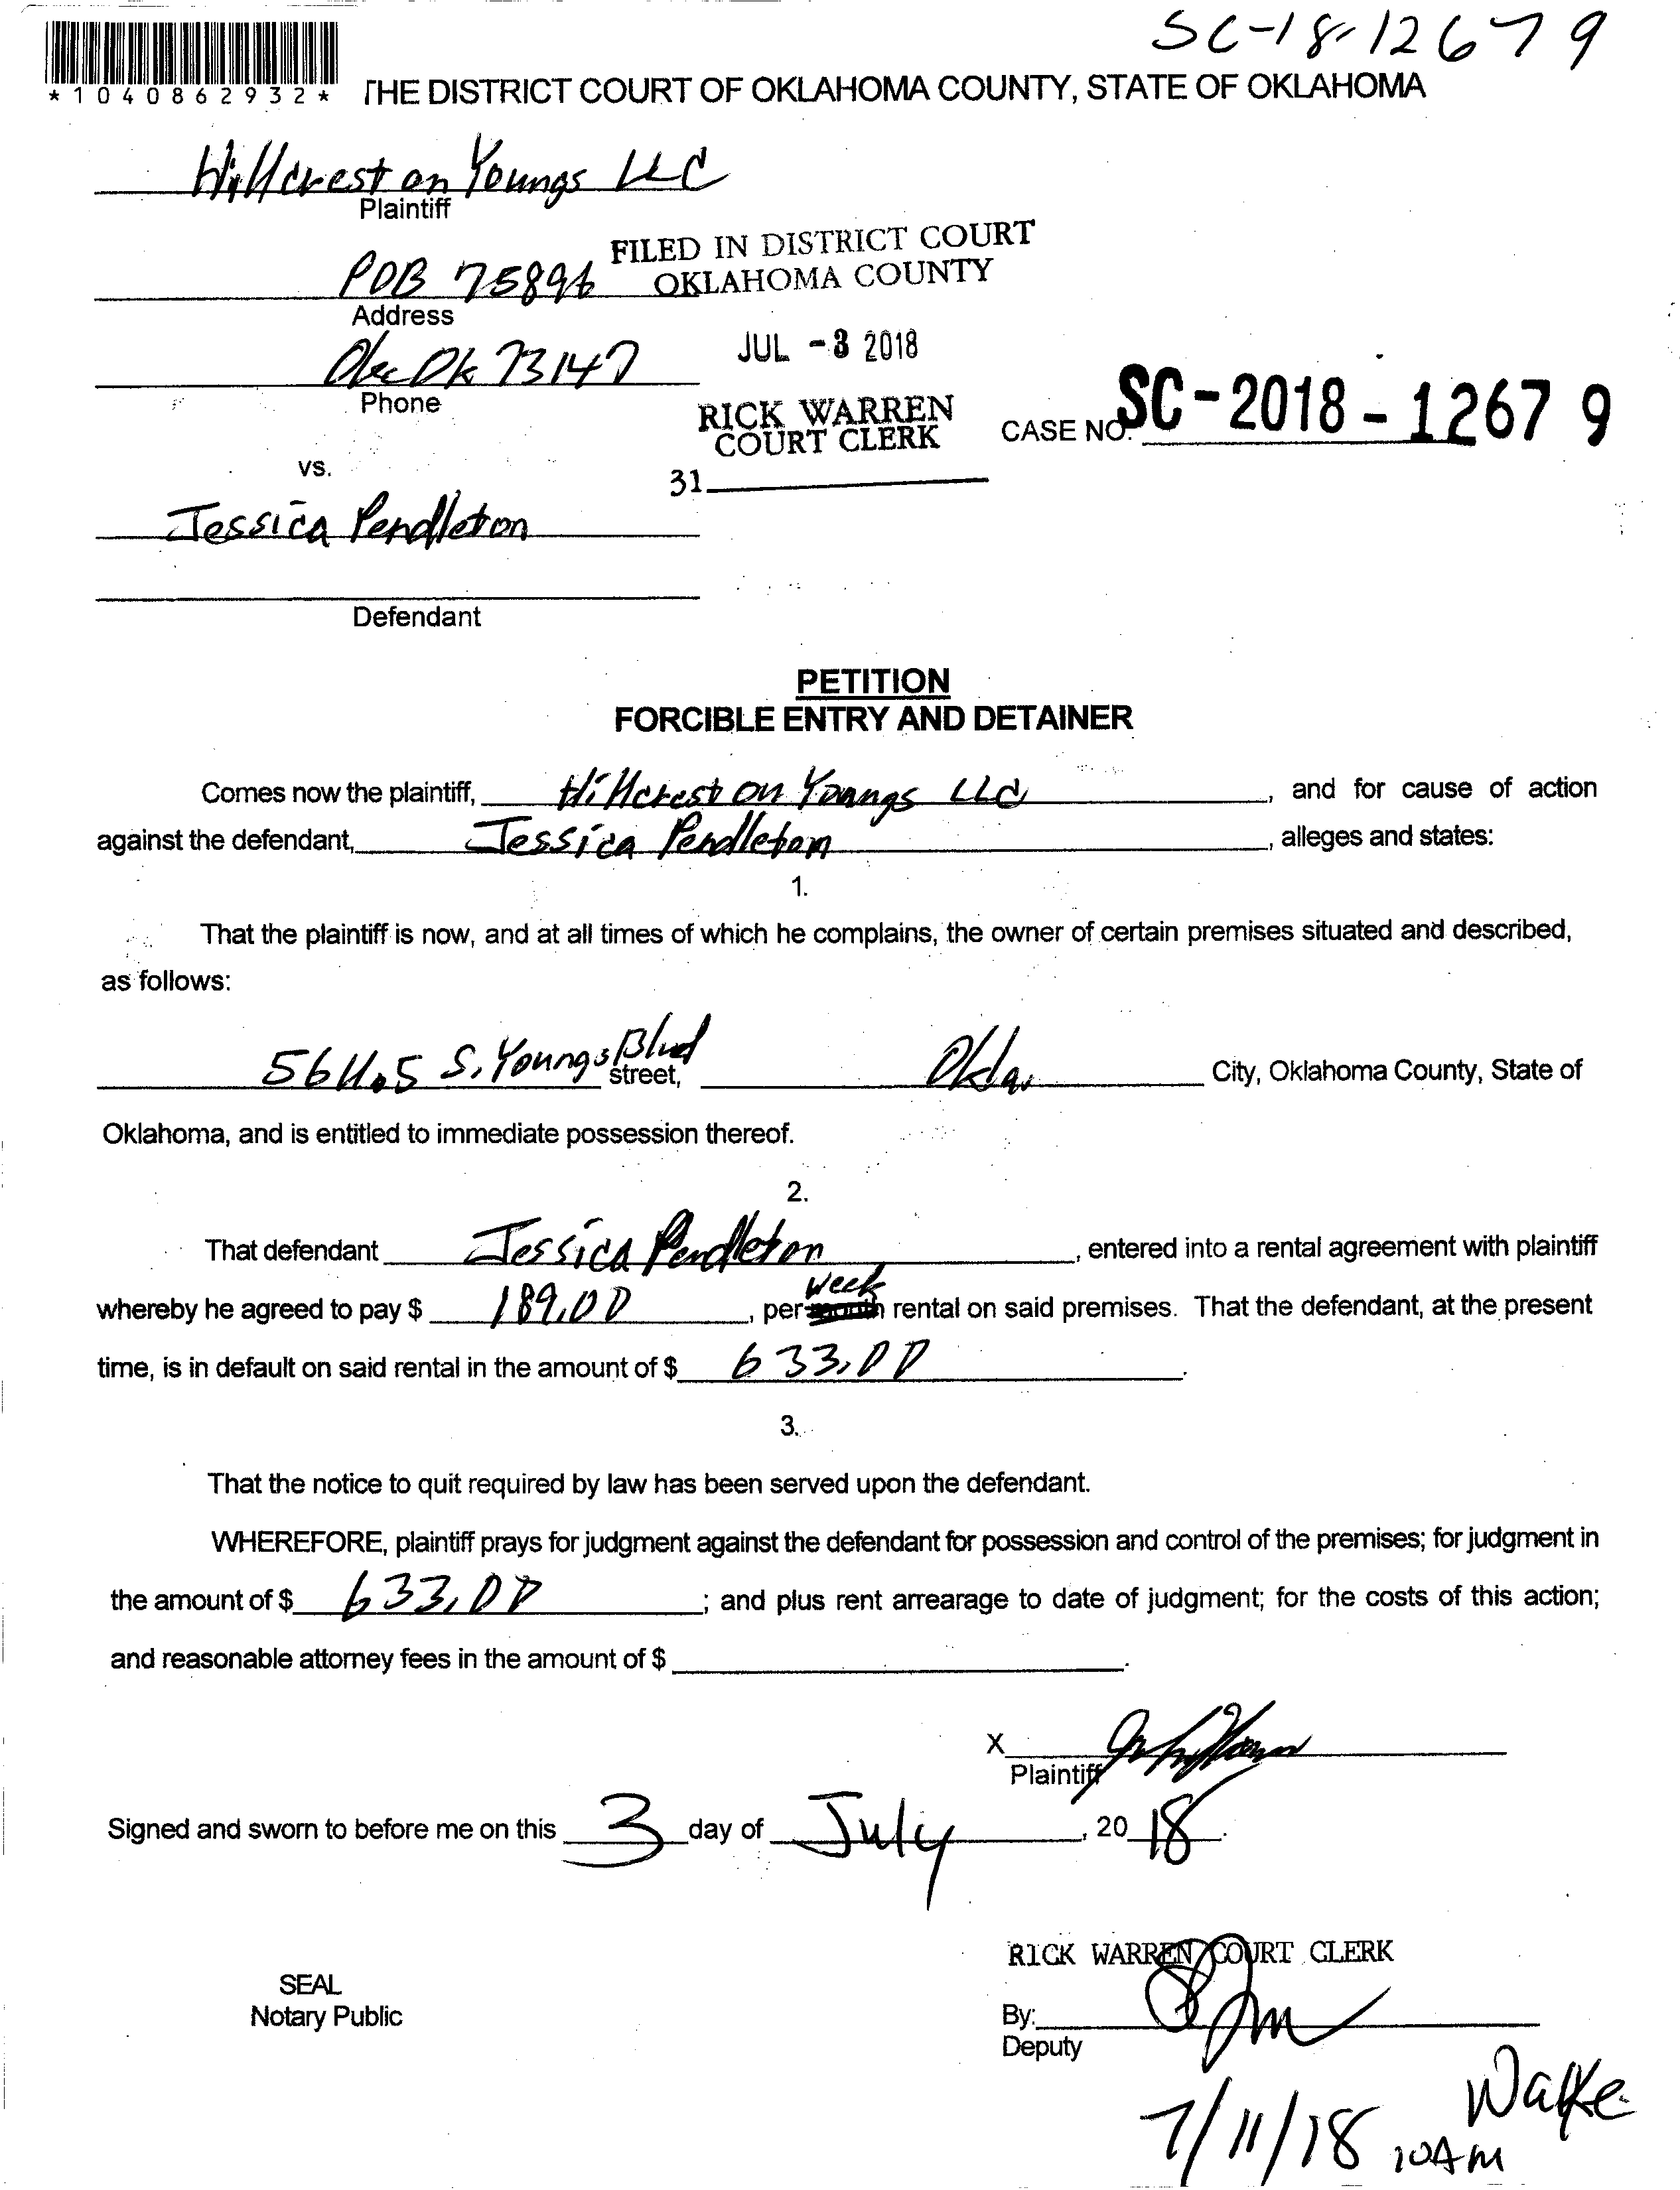 SC-18-12679
*1040862932*
THE DISTRICT COURT OF OKLAHOMA COUNTY, STATE OF OKLAHOMA
Hillcrest on Youngs LLC
Plaintiff
FILED IN DISTRICT COURT
OKLAHOMA COUNTY
POB 75896
Address
JUL -3 2018
Okc Ok 73147
Phone
RICK WARREN
COURT CLERK
CASE NO. SC-2018-12679
vs.
31
Jessica Pendleton
Defendant
PETITION
FORCIBLE ENTRY AND DETAINER
Comes now the plaintiff, Hillcrest on Youngs LLC, and for cause of action
against the defendant, Jessica Pendleton, alleges and states:
1.
That the plaintiff is now, and at all times of which he complains, the owner of certain premises situated and described,
as follows:
S. Youngs Blvd street, Okla. City, Oklahoma County, State of
Oklahoma, and is entitled to immediate possession thereof.
2.
That defendant Jessica Pendleton, entered into a rental agreement with plaintiff
week
whereby he agreed to pay $ 189.00, per month rental on said premises. That the defendant, at the present
time, is in default on said rental in the amount of $ 633.00.
3.
That the notice to quit required by law has been served upon the defendant.
WHEREFORE, plaintiff prays for judgment against the defendant for possession and control of the premises; for judgment in
the amount of $ 633.00; and plus rent arrearage to date of judgment; for the costs of this action;
and reasonable attorney fees in the amount of $ .
X
Plaintiff
Signed and sworn to before me on this 3 day of July, 20 18.
RICK WARREN COURT CLERK
SEAL
Notary Public
By:
Deputy
7/11/18 10AM